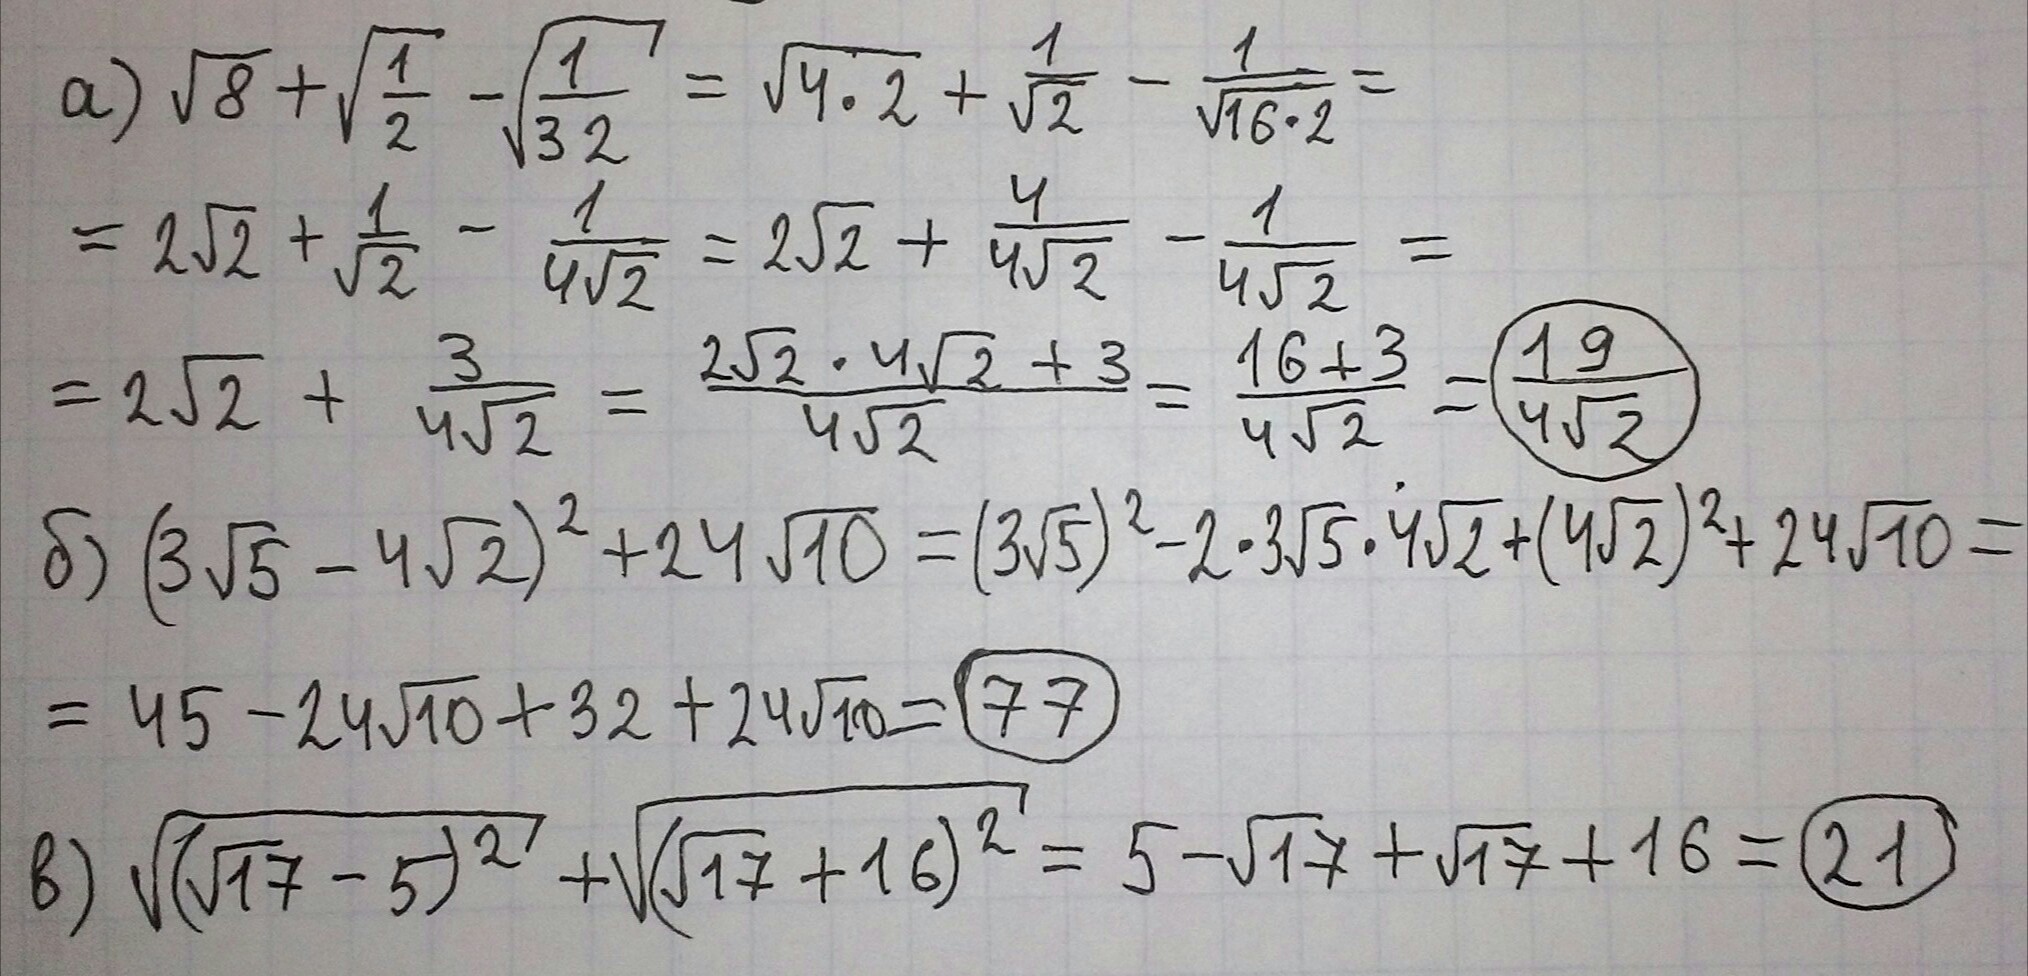 а) √8 + √(1/2) - √(1/32) = √(4·2) + 1/√2 - 1/√(16·2) =
= 2√2 + 1/√2 - 1/(4√2) = 2√2 + 4/(4√2) - 1/(4√2) =
= 2√2 + 3/(4√2) = (2√2·4√2+3)/(4√2) = (16+3)/(4√2) = 19/(4√2)
б) (3√5 - 4√2)² + 24√10 = (3√5)² - 2·3√5·4√2 + (4√2)² + 24√10 =
= 45 - 24√10 + 32 + 24√10 = 77
в) √((√17 - 5)²) + √((√17 + 16)²) = 5 - √17 + √17 + 16 = 21